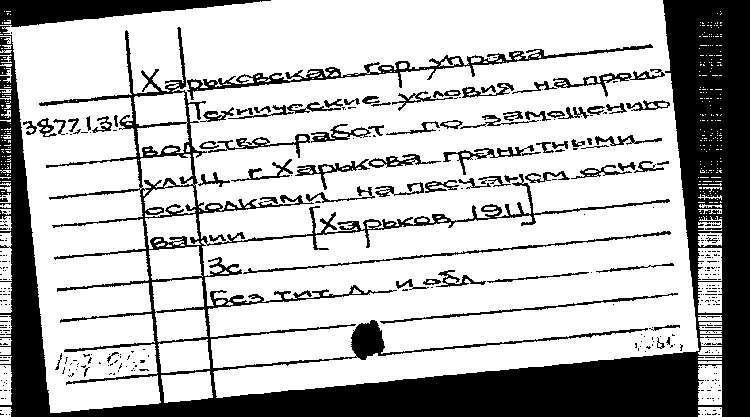 Харьковская гор. управа
38771.316 Технические условия на произ-
водство работ по замощению
улиц г. Харькова гранитными
осколками на песчаном осно-
вании [Харьков, 1911]
3с.
Без тит. л. и обл.